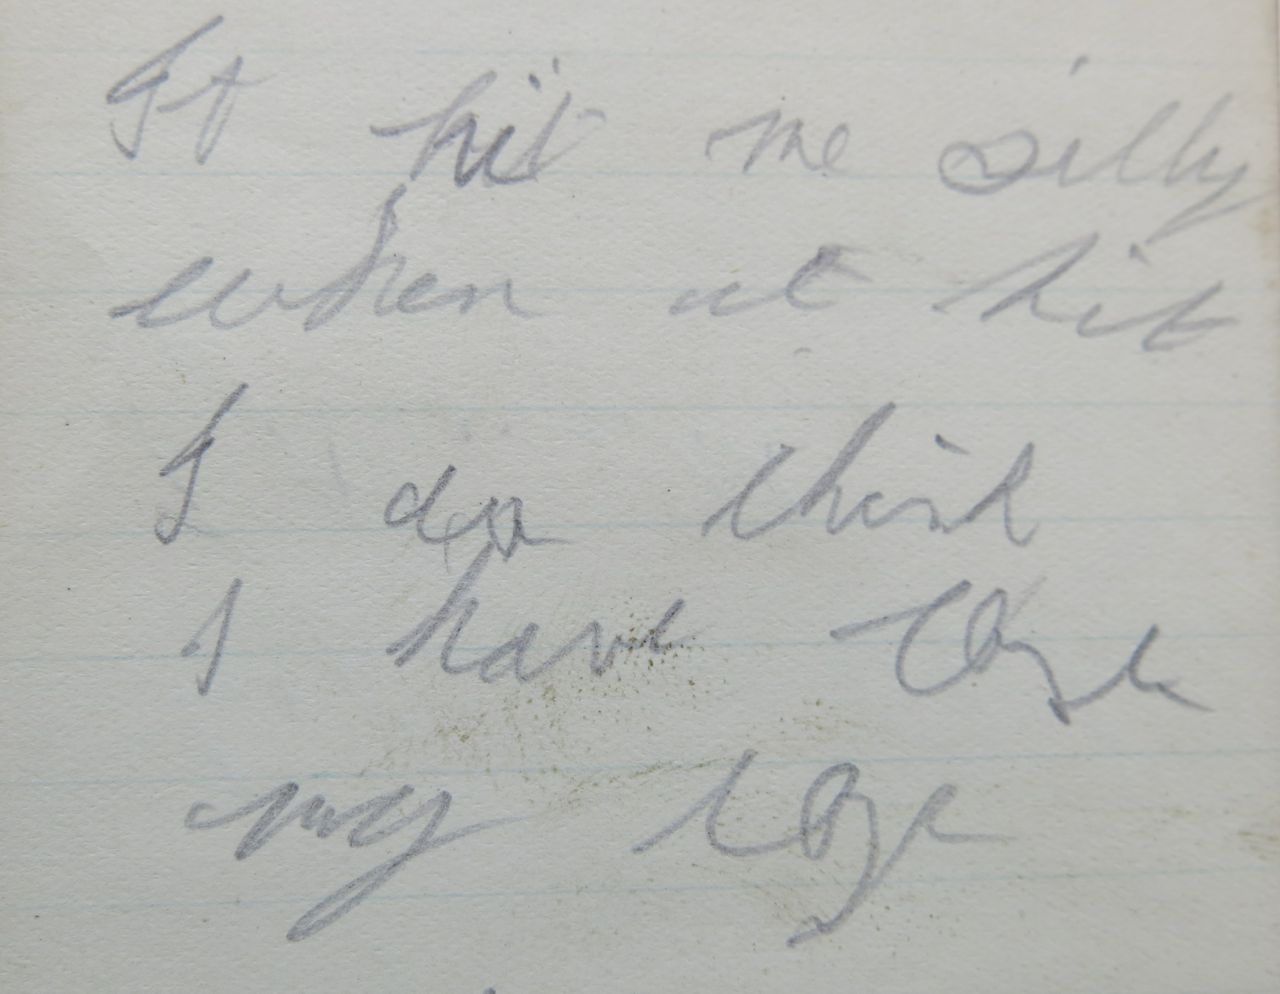 It hit me silly
when it hit
I do think
I have
my